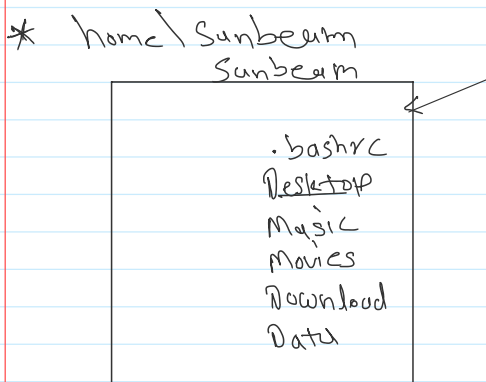 * home\Sunbeam
Sunbeam
.bashrc
Desktop
Music
Movies
Download
Data